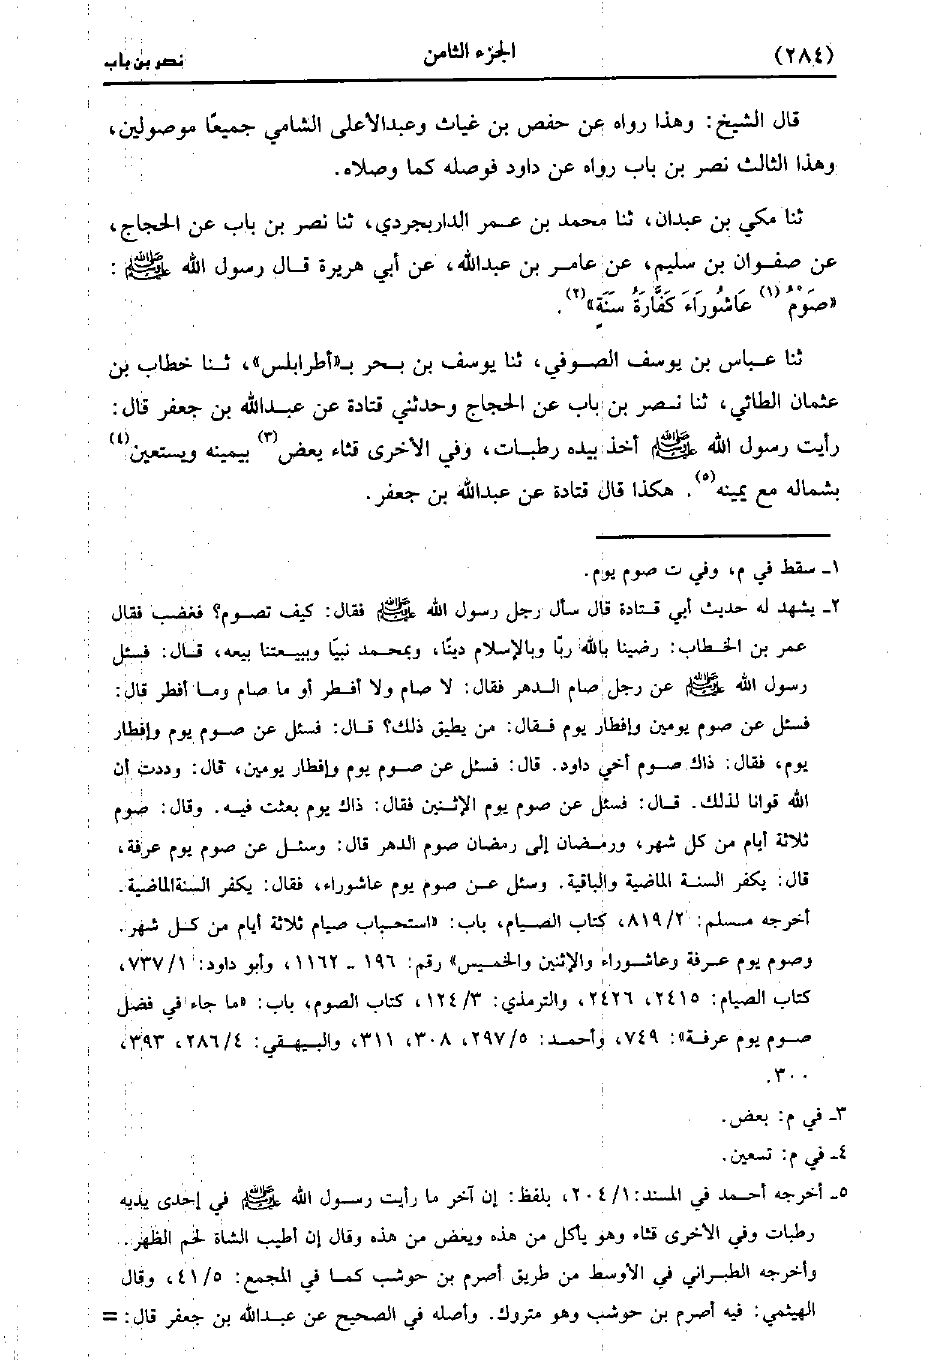 (٢٨٤) الجزء الثامن نصر بن باب
قال الشيخ: وهذا رواه عن حفص بن غياث وعبدالأعلى الشامي جميعًا موصولين،
وهذا الثالث نصر بن باب رواه عن داود فوصله كما وصلاه.
ثنا مكي بن عبدان، ثنا محمد بن عمر الداربجردي، ثنا نصر بن باب عن الحجاج،
عن صفوان بن سليم، عن عامر بن عبدالله، عن أبي هريرة قال رسول الله ﷺ:
«صَوْمُ(١) عَاشُورَاءَ كَفَّارَةُ سَنَةٍ»(٢).
ثنا عباس بن يوسف الصوفي، ثنا يوسف بن بحر بـ«أطرابلس»، ثنا خطاب بن
عثمان الطائي، ثنا نصر بن باب عن الحجاج وحدثني قتادة عن عبدالله بن جعفر قال:
رأيت رسول الله ﷺ أخذ بيده رطبات، وفي الأخرى قثاء يعض(٣) بيمينه ويستعين(٤)
بشماله مع يمينه(٥). هكذا قال قتادة عن عبدالله بن جعفر.
١ـ سقط في م، وفي ت صوم يوم.
٢ـ يشهد له حديث أبي قتادة قال سأل رجل رسول الله ﷺ فقال: كيف تصوم؟ فغضب فقال
عمر بن الخطاب: رضينا بالله ربّا وبالإسلام دينًا، وبمحمد نبيّا وببيعتنا بيعه، قال: فسئل
رسول الله ﷺ عن رجل صام الدهر فقال: لا صام ولا أفطر أو ما صام وما أفطر قال:
فسئل عن صوم يومين وإفطار يوم فقال: من يطيق ذلك؟ قال: فسئل عن صوم يوم وإفطار
يوم، فقال: ذاك صوم أخي داود. قال: فسئل عن صوم يوم وإفطار يومين، قال: وددت أن
الله قوانا لذلك. قال: فسئل عن صوم يوم الإثنين فقال: ذاك يوم بعثت فيه. وقال: صوم
ثلاثة أيام من كل شهر، ورمضان إلى رمضان صوم الدهر قال: وسئل عن صوم يوم عرفة،
قال: يكفر السنة الماضية والباقية. وسئل عن صوم يوم عاشوراء، فقال: يكفر السنةالماضية.
أخرجه مسلم: ٨١٩/٢، كتاب الصيام، باب: «استحباب صيام ثلاثة أيام من كل شهر.
وصوم يوم عرفة وعاشوراء والإثنين والخميس» رقم: ١٩٦ ـ ١١٦٢، وأبو داود: ٧٣٧/١،
كتاب الصيام: ٢٤١٥، ٢٤٢٦، والترمذي: ١٢٤/٣، كتاب الصوم، باب: «ما جاء في فضل
صوم يوم عرفة»: ٧٤٩، وأحمد: ٢٩٧/٥، ٣٠٨، ٣١١، والبيهقي: ٢٨٦/٤، ٣٩٣،
٣٠٠.
٣ـ في م: بعض.
٤ـ في م: تسعين.
٥ـ أخرجه أحمد في المسند: ٢٠٤/١، بلفظ: إن آخر ما رأيت رسول الله ﷺ في إحدى يديه
رطبات وفي الأخرى قثاء وهو يأكل من هذه ويعض من هذه وقال إن أطيب الشاة لحم الظهر.
وأخرجه الطبراني في الأوسط من طريق أصرم بن حوشب كما في المجمع: ٤١/٥، وقال
الهيثمي: فيه أصرم بن حوشب وهو متروك. وأصله في الصحيح عن عبدالله بن جعفر قال: =